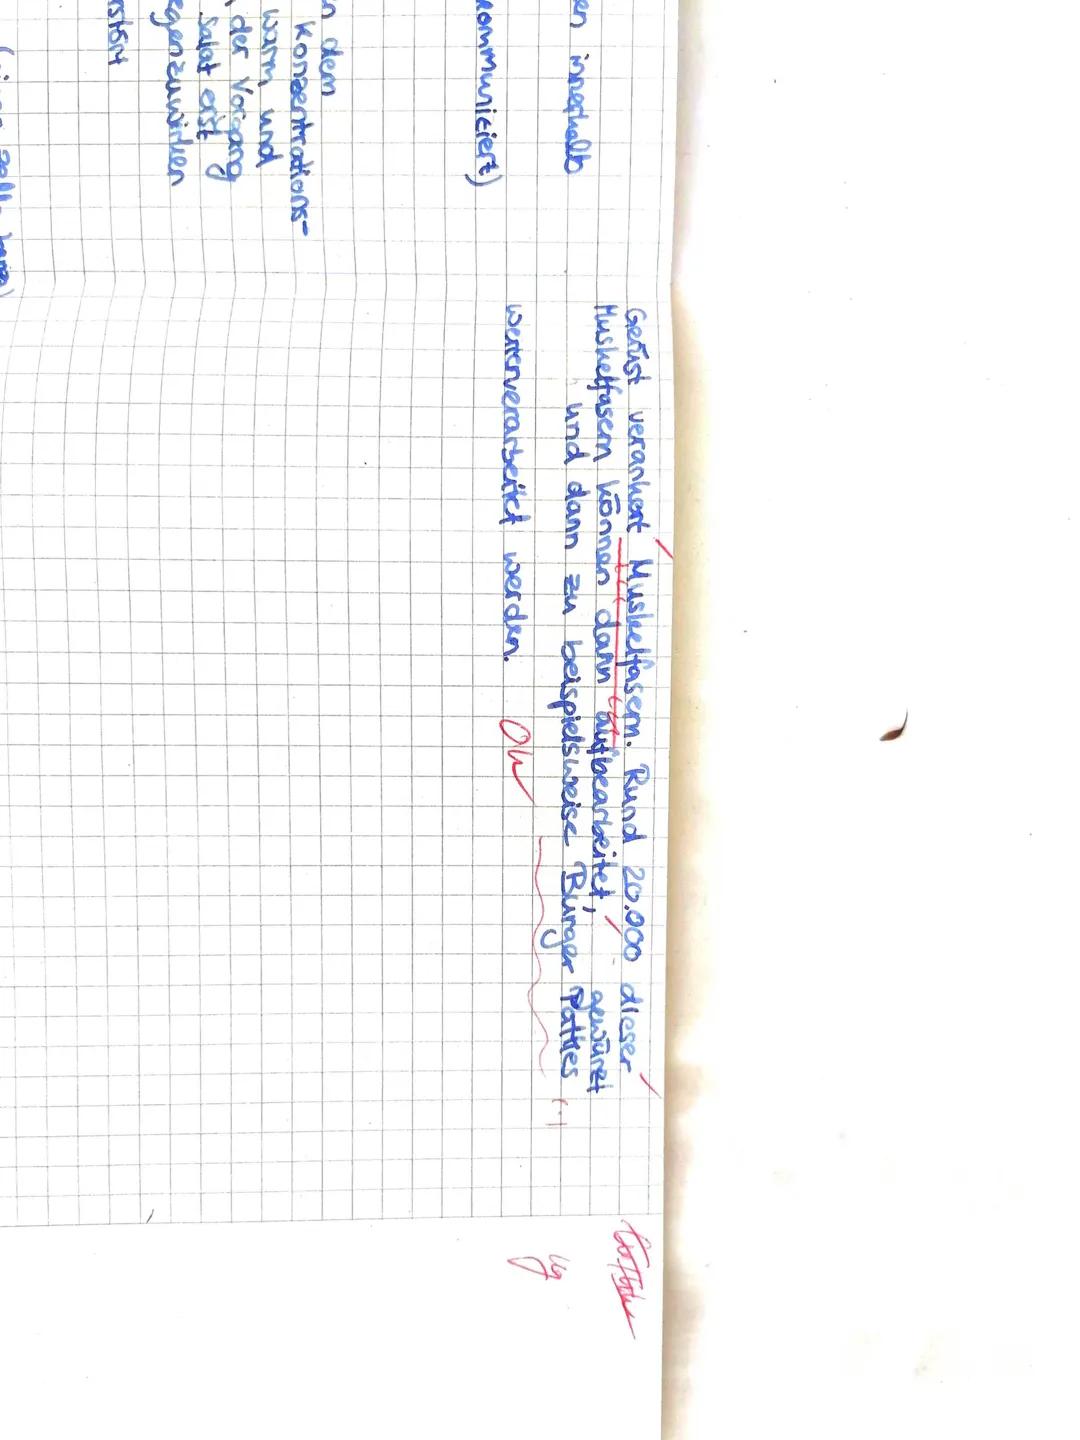 en innerhalb
kommuniziert)
n den
Konzentrations-
warm und
der Vorgang
Salat erst
egenzuwirken
rstört
Gerüst verankert Muskelfasern. Rund 20.000 dieser
Muskelfasern können dann aufbearbeitet, gewürzt
und dann zu beispielsweise Burger Patties
weiterverarbeitet werden.
(-)